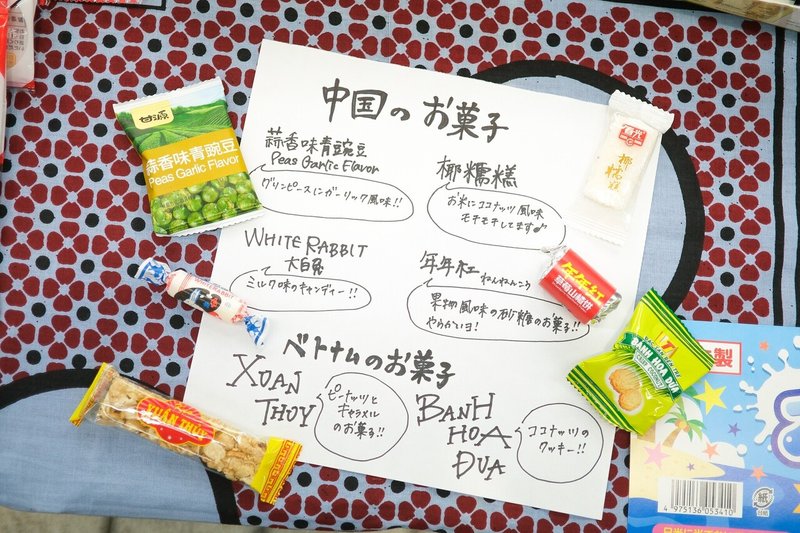 中国のお菓子
蒜香味青豌豆
Peas Garlic Flavor
グリンピースにガーリック風味!!
椰糯糕
お米にココナッツ風味
モチモチしてます♪
WHITE RABBIT
大白兔
ミルク味のキャンディー!!
年年紅 ねんねんこう
果物風味の砂糖のお菓子!!
やわらかいヨ!
ベトナムのお菓子
XUAN
THUY
ピーナッツと
キャラメル
のお菓子!!
BANH
HOA
DUA
ココナッツの
クッキー!!
甘源
蒜香味青豌豆
Peas Garlic Flavor
春光
椰糯糕
年年紅
XUAN THUY
BANH HOA DUA
製
4 975136 053410
紙